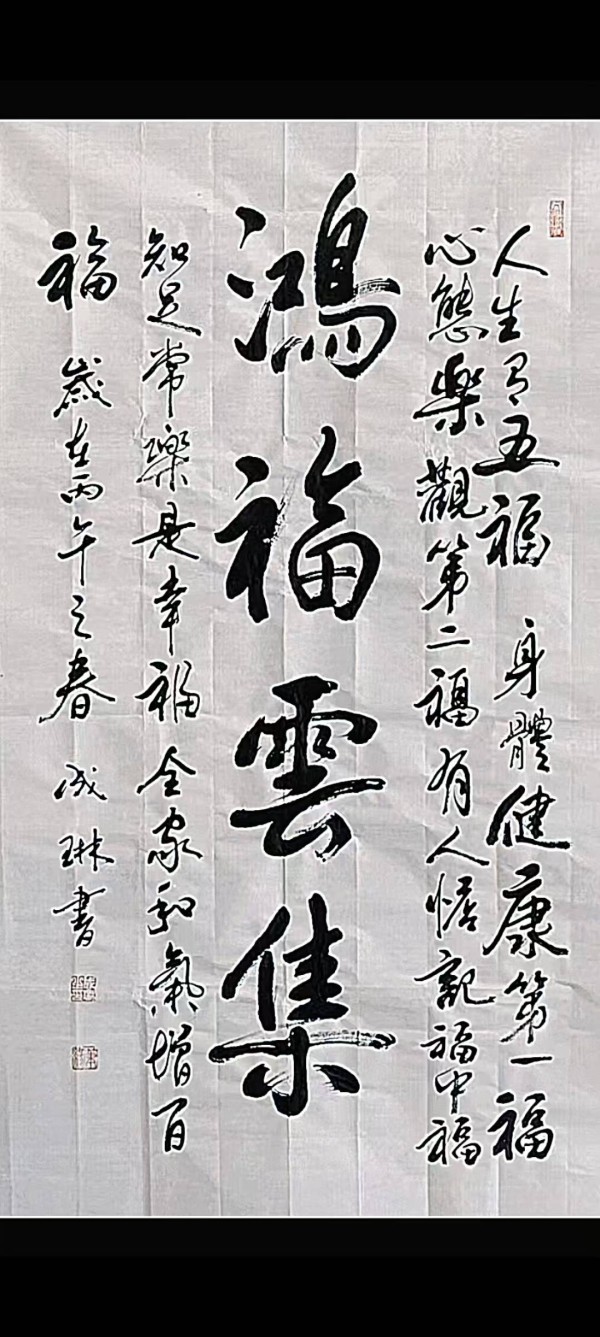 人生有五福 身體健康第一福
心態樂觀第二福有人惦記福中福
鴻福雲集
知足常樂是幸福全家和氣增百
福 歲在丙午之春 成琳書